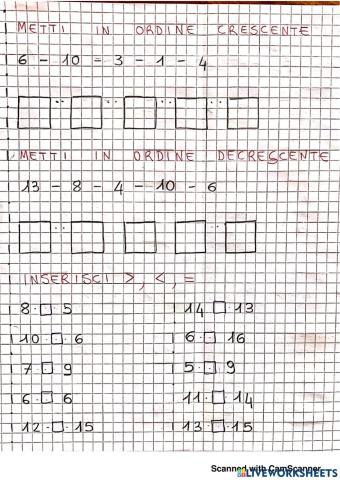 METTI IN ORDINE CRESCENTE
6 - 10 = 3 - 1 - 4
METTI IN ORDINE DECRESCENTE
13 - 8 - 4 - 10 - 6
INSERISCI >, <, =
8 □ 5 14 □ 13
10 □ 6 6 □ 16
7 □ 9 5 □ 9
6 □ 6 11 □ 14
12 □ 15 13 □ 15
Scanned with CamScanner
LIVEWORKSHEETS